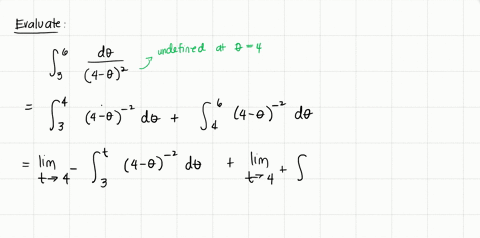 Evaluate:
∫₃⁶ dθ/(4-θ)² undefined at θ = 4
= ∫₃⁴ (4-θ)⁻² dθ + ∫₄⁶ (4-θ)⁻² dθ
= lim t→4⁻ ∫₃ᵗ (4-θ)⁻² dθ + lim t→4⁺ ∫